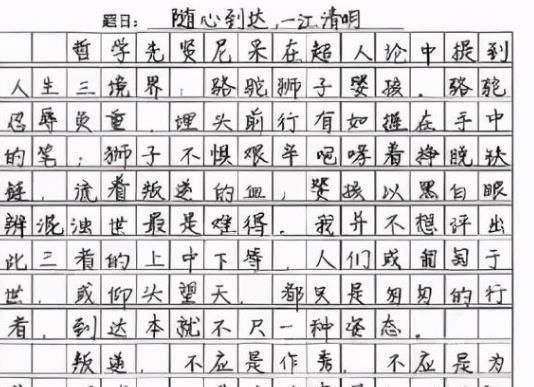 题目：随心到达，一江清明
哲学先贤尼采在超人论中提到
人生三境界，骆驼狮子婴孩。骆驼
忍辱负重，埋头前行有如握在手中
的笔；狮子不惧艰辛咆哮着挣脱铁
链，流着叛逆的血，婴孩以黑白眼
辨混浊世最是难得。我并不想评出
此三者的上中下等，人们或匍匐于
世，或仰头望天，都只是匆匆的行
者，到达本就不只一种姿态。
叛逆，不应是作秀，不应是为